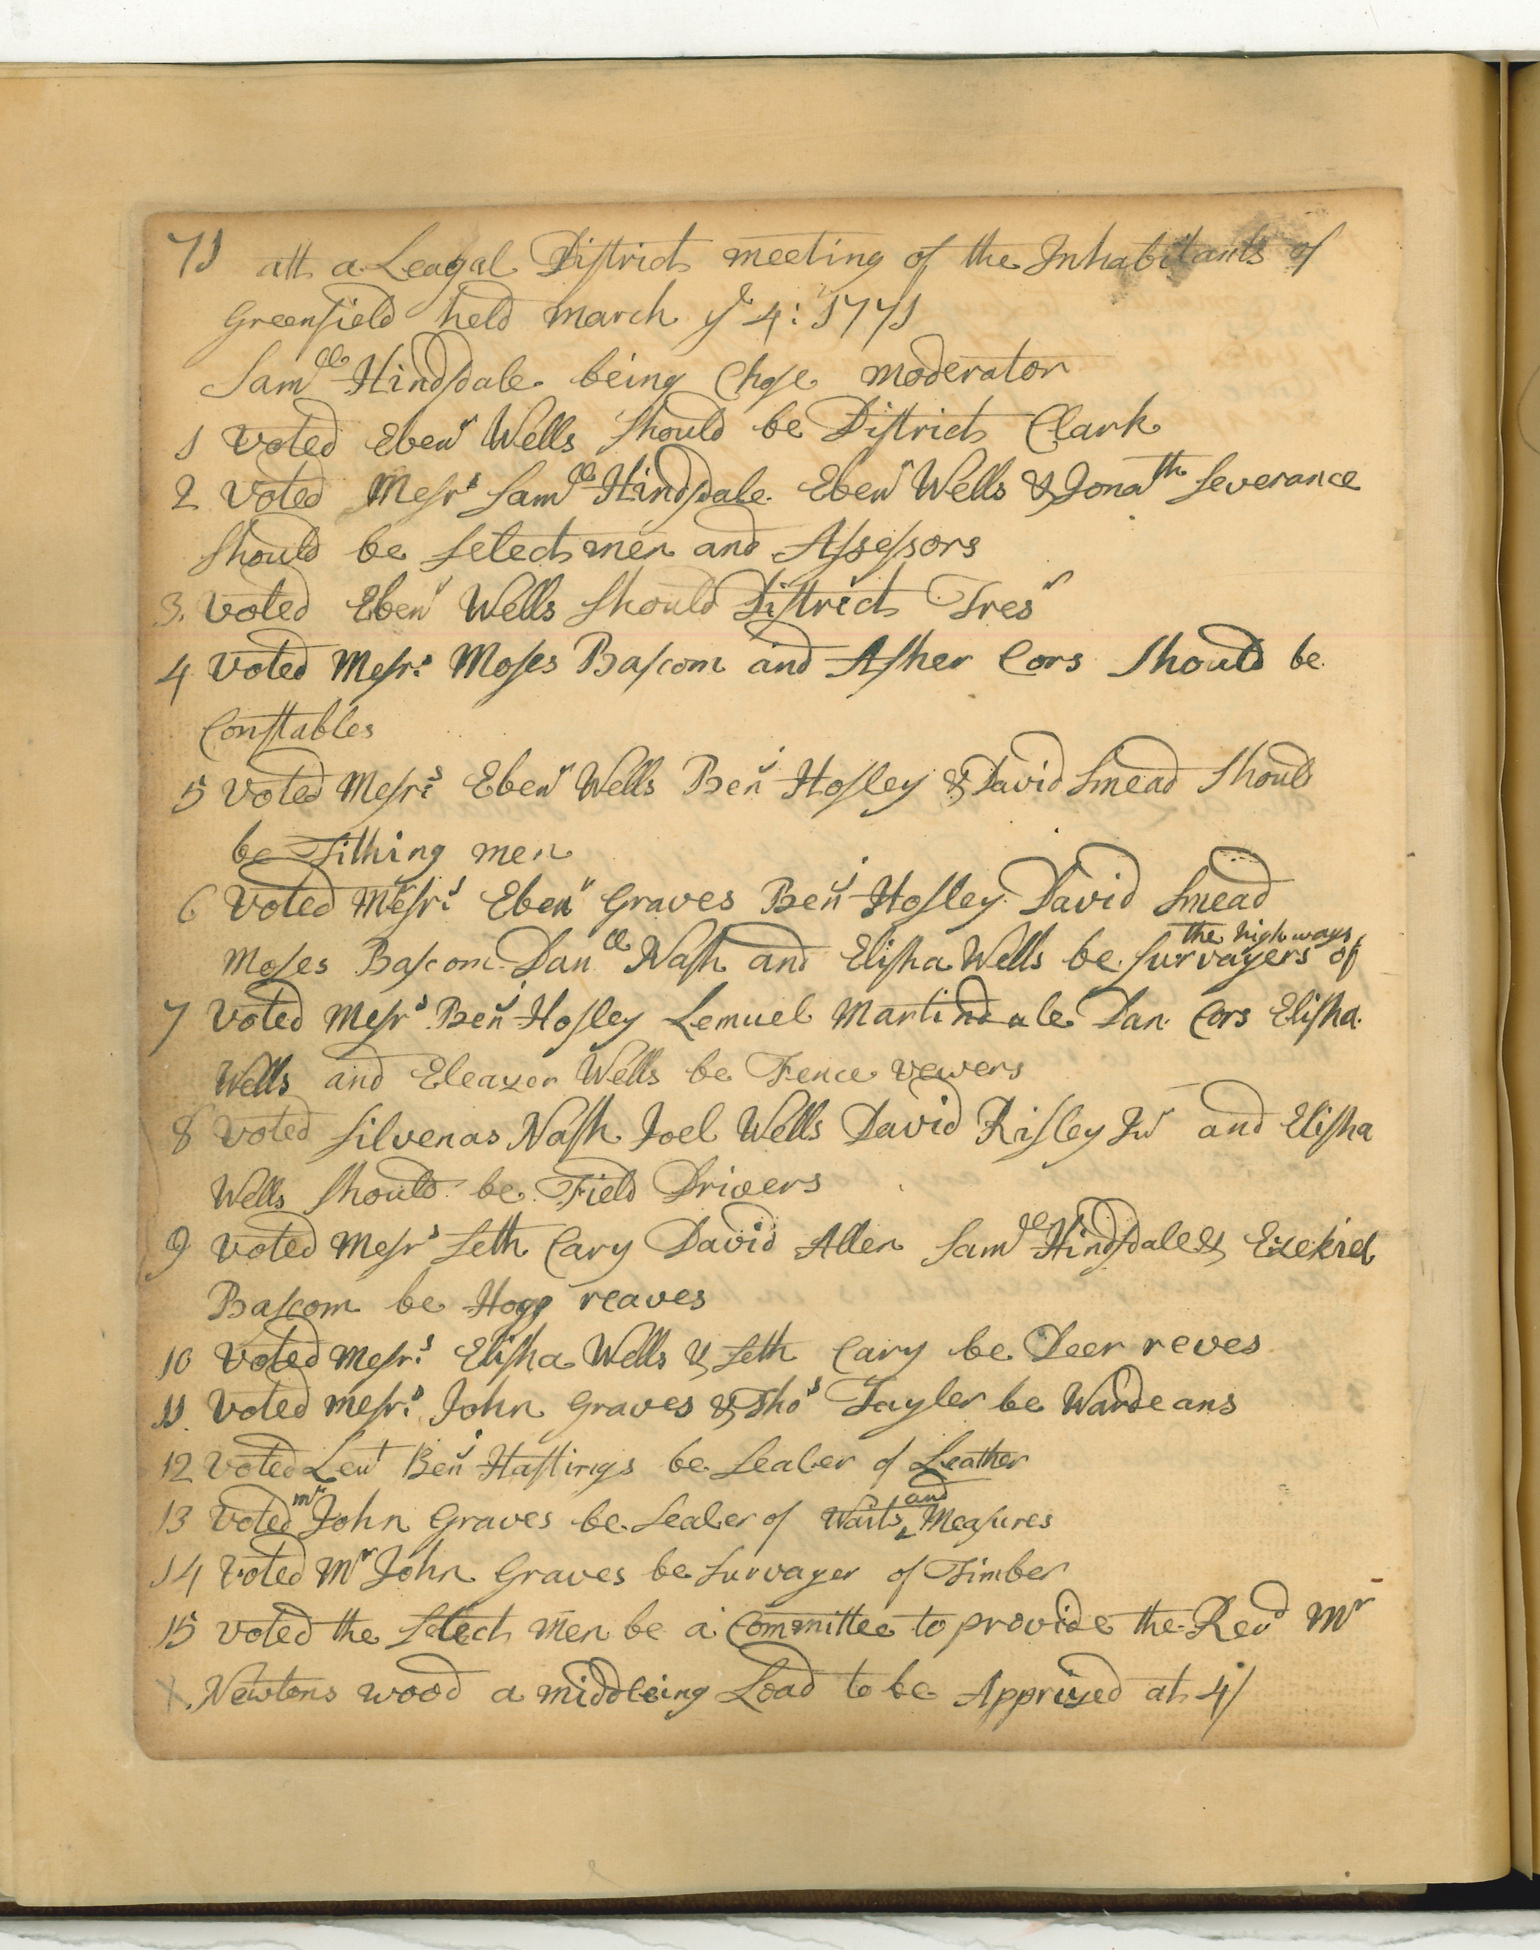 71 att a Leagal District meeting of the Inhabitants of
Greenfield held march ye 4: 1771
Samll Hindsdale being Chose moderator
1 Voted Ebenr Wells Should be District Clark
2 Voted Mesrs Samll Hindsdale Ebenr Wells & Jonath Severance
Should be Select men and Assessors
3. Voted Ebenr Wells Should District Tresr
4 Voted Mesrs Moses Bascom and Asher Cors Should be
Constables
5 Voted Mesrs Ebenr Wells Benj Hosley & David Smead Should
be Tithing men
6 Voted Mesrs Ebenr Graves Benj Hosley David Smead
the high ways
Moses Bascom Danll Nash and Elisha Wells be Survayers of
7 Voted Mesrs Benj Hosley Lemuel Martindale Dan Cors Elisha
Wells and Eleazor Wells be Fence vewers
8 Voted Silvenas Nash Joel Wells David Risley Jur and Elisha
Wells Should be Field Drivers
9 Voted Mesrs Seth Cary David Allen Samll Hindsdale & Ezekiel
Bascom be Hogg reaves
10 Voted Mesrs Elisha Wells & Seth Cary be Deer reves
11 Voted mesrs John Graves & Thos Tayler be Wardeans
12 Voted Leut Benj Hastings be Sealer of Leather
13 Voted mr John Graves be Sealer of Waits and Measures
14 Voted Mr John Graves be Survayer of Timber
15 Voted the Select men be a Committee to provide the Revd Mr
X. Newtons wood a middleing Load to be Apprised at 4/